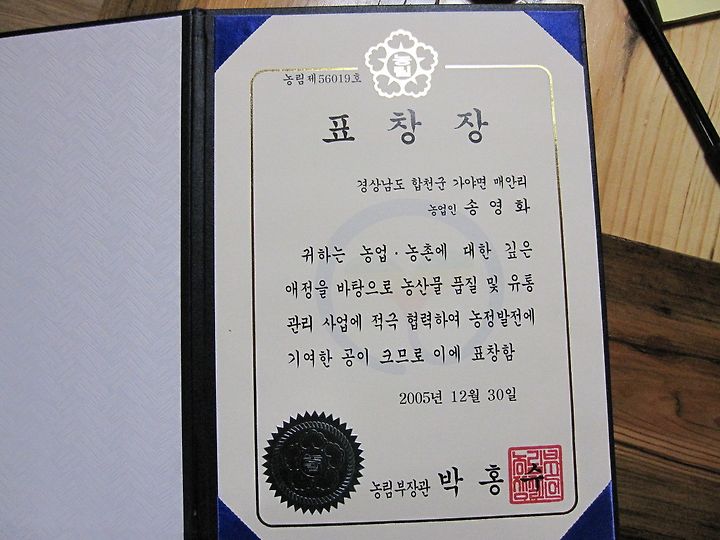 농림제56019호
표 창 장
경상남도 합천군 가야면 매안리
농업인 송 영 화
귀하는 농업 · 농촌에 대한 깊은
애정을 바탕으로 농산물 품질 및 유통
관리 사업에 적극 협력하여 농정발전에
기여한 공이 크므로 이에 표창함
2005년 12월 30일
농림부장관 박 홍 수